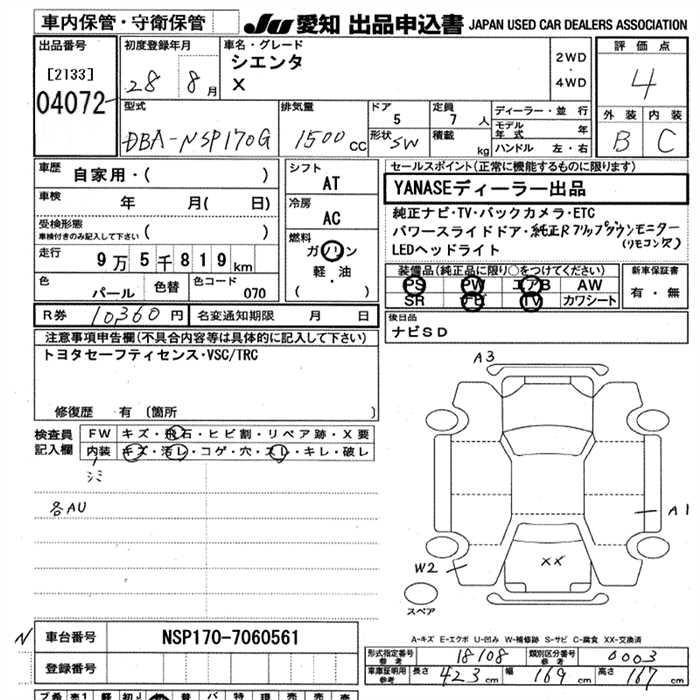 車内保管・守衛保管
JU 愛知 出品申込書 JAPAN USED CAR DEALERS ASSOCIATION
出品番号
[2133]
04072
初度登録年月
28 8月
車名・グレード
シエンタ
X
2WD
・
4WD
評価点
4
外装 内装
B C
型式
DBA-NSP170G
排気量
1500 CC
ドア
5
形状
SW
定員
7 人
積載
kg
ディーラー・並行
モデル年式 年
ハンドル 左・右
車歴
自家用・( )
車検
年 月( 日)
受検形態
車検付きのみ記入して下さい ( )
走行
9万5千819km
色
パール
色替
色コード
070
シフト
AT
冷房
AC
燃料
ガソリン
軽・油
( )
セールスポイント(正常に機能するものに限ります)
YANASEディーラー出品
純正ナビ・TV・バックカメラ・ETC
パワースライドドア・純正Rフリップダウンモニター
(リモコン欠)
LEDヘッドライト
装備品(純正品に限り○をつけてください)
PS PW エアB AW
SR ナビ TV カワシート
新車保証書
有・無
R券 10360円
名変通知期限 月 日
後日品
ナビSD
注意事項申告欄(不具合内容等は具体的に記入して下さい)
トヨタセーフティセンス・VSC/TRC
修復歴 有 〔箇所 〕
検査員
記入欄
FW キズ・飛石・ヒビ割・リペア跡・X要
内装 キズ・汚レ・コゲ・穴・スレ・キレ・破レ
シミ
各AU
A3
A1
W2
XX
スペア
A-キズ E-エクボ U-凹み W-補修跡 S-サビ C-腐食 XX-交換済
N
車台番号 NSP170-7060561
登録番号
形式指定番号
参考
18108
類別区分番号
参考
0003
車庫証明用
参考
長さ 423 cm 幅 169 cm 高さ 167 cm